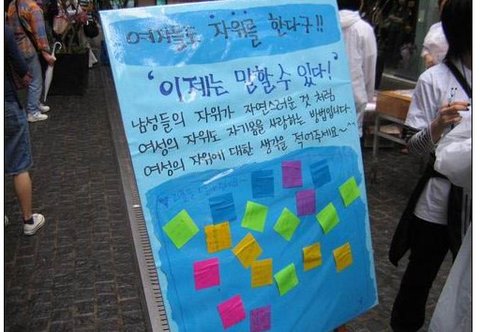 여자들도 자위를 한다구!!
'이제는 말할 수 있다!'
남성들의 자위가 자연스러운 것 처럼
여성의 자위도 자기몸을 사랑하는 방법입니다
여성의 자위에 대한 생각을 적어주세요~